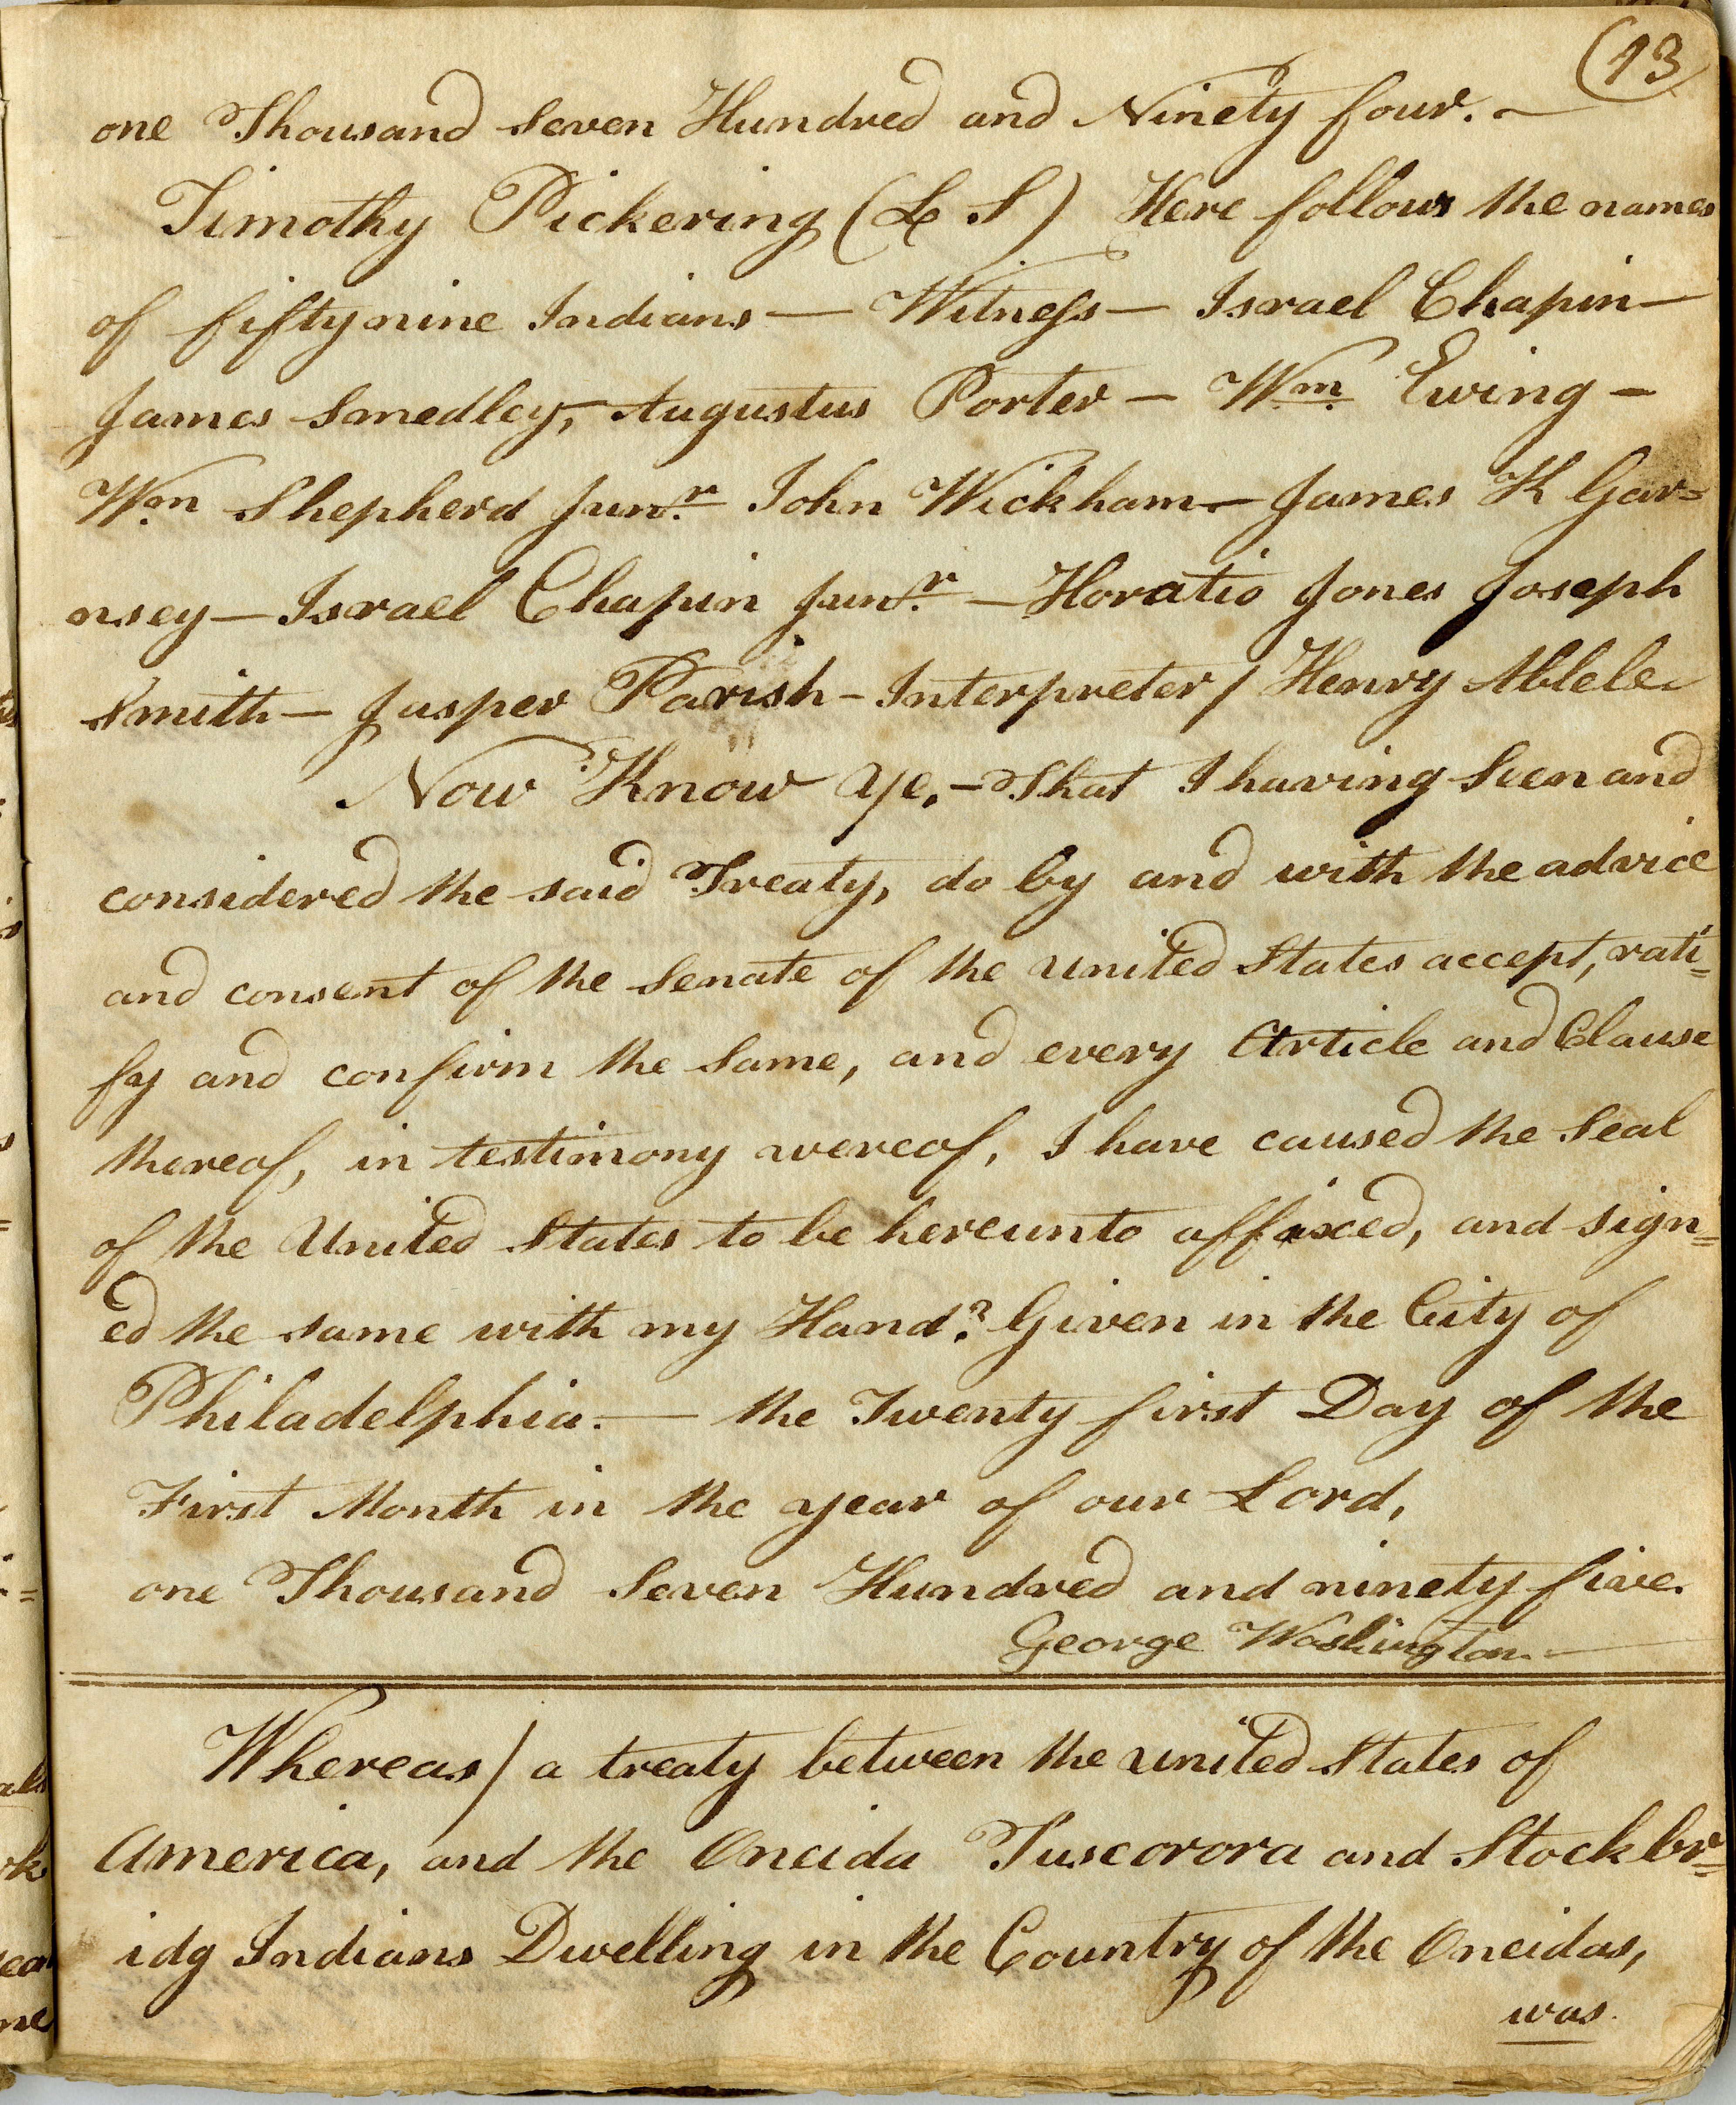 (13
one Thousand Seven Hundred and Ninety four. —
Timothy Pickering (L S) Here follows the names
of fifty nine Indians — Witness — Israel Chapin —
James Smedley, — Augustus Porter — Wm Ewing —
Wm Shepherd Junr. John Wickham — James K Gar=
nsey — Israel Chapin Junr. — Horatio Jones Joseph
Smith — Jasper Parish — Interpreter / Henry Ablele
Now Know Ye, — That I having Seen and
considered the said Treaty, do by and with the advice
and consent of the Senate of the united States accept, rati=
fy and confirm the Same, and every Article and Clause
thereof, in testimony wereof, I have caused the Seal
of the United States to be hereunto affixed, and sign=
ed the same with my Hand? Given in the City of
Philadelphia. — the Twenty first Day of the
First Month in the year of our Lord,
one Thousand Seven Hundred and ninety five.
George Washington. —
Whereas / a treaty between the united States of
America, and the Oneida Tuscorora and Stockbr=
idg Indians Dwelling in the Country of the Oneidas,
was.